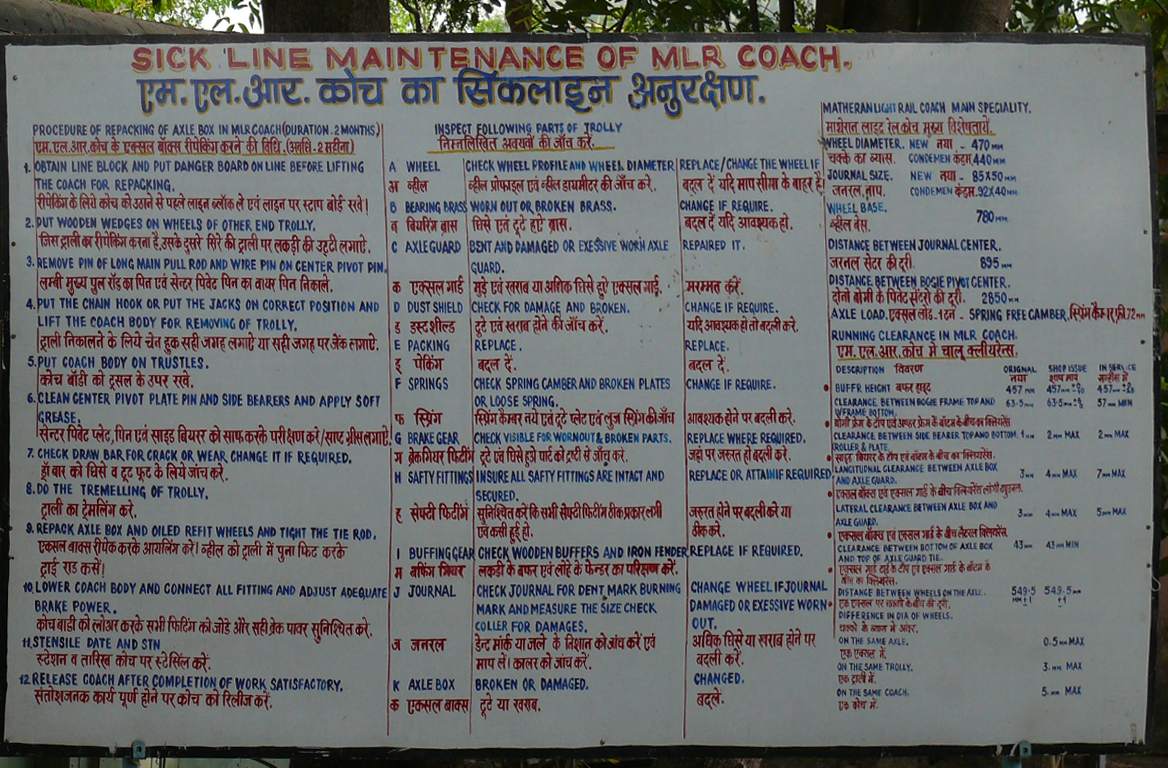 SICK LINE MAINTENANCE OF MLR COACH.
एम.एल.आर. कोच का सिकलाइन अनुरक्षण.
PROCEDURE OF REPACKING OF AXLE BOX IN MLR COACH (DURATION. 2 MONTHS)
एम.एल.आर.कोच के एक्सल बॉक्स रीपेकिंग करने की विधि. (अवधि. 2 महीना)
1. OBTAIN LINE BLOCK AND PUT DANGER BOARD ON LINE BEFORE LIFTING
THE COACH FOR REPACKING.
रीपेकिंग के लिये कोच को उठाने से पहले लाइन ब्लॉक ले एवं लाइन पर स्टाप बोर्ड रखें।
2. PUT WOODEN WEDGES ON WHEELS OF OTHER END TROLLY.
जिस ट्राली का रीपेकिंग करना है, उसके दुसरे सिरे की ट्राली पर लकडी की उट्टी लगाऐ.
3. REMOVE PIN OF LONG MAIN PULL ROD AND WIRE PIN ON CENTER PIVOT PIN.
लम्बी मुख्य पुल रॉड का पिन एवं सेन्टर पिवेट पिन का वायर पिन निकाले.
4. PUT THE CHAIN HOOK OR PUT THE JACKS ON CORRECT POSITION AND
LIFT THE COACH BODY FOR REMOVING OF TROLLY.
ट्राली निकालने के लिये चेन हुक सही जगह लगाऐं या सही जगह पर जेंक लगाऐ.
5. PUT COACH BODY ON TRUSTLES.
कोच बॉडी को ट्रसल के उपर रखे.
6. CLEAN CENTER PIVOT PLATE PIN AND SIDE BEARERS AND APPLY SOFT
GREASE.
सेन्टर पिवेट प्लेट, पिन एवं साइड बियरर को साफ करके परीक्षण करें/साफ्ट ग्रीस लगाऐ
7. CHECK DRAW BAR FOR CRACK OR WEAR CHANGE IT IF REQUIRED.
ड्रॉ बार को घिसे व टूट फूट के लिये जांच करें.
8. DO THE TREMELLING OF TROLLY.
ट्राली का ट्रेमलिंग करें.
9. REPACK AXLE BOX AND OILED REFIT WHEELS AND TIGHT THE TIE ROD.
एक्सल बाक्स रीपेक करके आयलिंग करें। व्हील को ट्राली में पुना फिट करके
टाई राड कसें।
10. LOWER COACH BODY AND CONNECT ALL FITTING AND ADJUST ADEQUATE
BRAKE POWER.
कोच बाडी को लोअर करके सभी फिटिंग को जोडे और सही ब्रेक पावर सुनिश्चित करें.
11. STENSILE DATE AND STN
स्टेशन व तारिख कोच पर स्टेंसिल करें.
12. RELEASE COACH AFTER COMPLETION OF WORK SATISFACTORY.
संतोशजनक कार्य पूर्ण होने पर कोच को रिलीज करें.
INSPECT FOLLOWING PARTS OF TROLLY
निम्नलिखित अवयवों की जाँच करें.
A WHEEL CHECK WHEEL PROFILE AND WHEEL DIAMETER REPLACE/CHANGE THE WHEEL IF
अ व्हील व्हील प्रोफाइल एवं व्हील डायमीटर की जाँच करें. बदल दें यदि माप सीमा के बाहर है।
B BEARING BRASS WORN OUT OR BROKEN BRASS. CHANGE IF REQUIRE.
ब बियरिंग ब्रास घिसे एवं टूटे हुऐ ब्रास. बदल दें यदि आवश्यक हो.
C AXLE GUARD BENT AND DAMAGED OR EXESSIVE WORN AXLE REPAIRED IT.
GUARD.
क एक्सल गार्ड मुडे एवं खराब या अधिक घिसे हुऐ एक्सल गार्ड. मरम्मत करें.
D DUST SHIELD CHECK FOR DAMAGE AND BROKEN. CHANGE IF REQUIRE.
ड डस्टशील्ड टूटे एवं खराब होने की जाँच करें. यदि आवश्यक हो तो बदली करें.
E PACKING REPLACE. REPLACE.
इ पेकिंग बदल दें. बदल दें.
F SPRINGS CHECK SPRING CAMBER AND BROKEN PLATES CHANGE IF REQUIRE.
OR LOOSE SPRING.
फ स्प्रिंग स्प्रिंग कैम्बर नये एवं टूटे प्लेट एवं लुज स्प्रिंग की जाँच आवश्यक होने पर बदली करें.
G BRAKE GEAR CHECK VISIBLE FOR WORNOUT & BROKEN PARTS. REPLACE WHERE REQUIRED.
ग ब्रेकगियर फिटींग टूटे एवं घिसे हुऐ पार्ट को द्रष्टी से जाँच करें. जहां पर जरूरत हो बदली करें.
H SAFTY FITTINGS INSURE ALL SAFTY FITTINGS ARE INTACT AND REPLACE OR ATTAIN IF REQUIRED
SECURED.
ह सेफ्टी फिटींग सुनिश्चित करें कि सभी सेफ्टी फिटींग ठीक प्रकार लगी जरूरत होने पर बदली करे या
एवं कसी हुई हो. ठीक करें.
I BUFFING GEAR CHECK WOODEN BUFFERS AND IRON FENDER REPLACE IF REQUIRED.
म बफिंग गियर लकडी के बफर एवं लोहे के फेन्डर का परिक्षण करें.
J JOURNAL CHECK JOURNAL FOR DENT, MARK BURNING CHANGE WHEEL IF JOURNAL
MARK AND MEASURE THE SIZE CHECK DAMAGED OR EXESSIVE WORN
COLLER FOR DAMAGES. OUT.
ज जनरल डेन्ट मार्क या जले के निशान को जांच करें एवं अधिक घिसे या खराब होने पर
माप लें। कालर को जांच करें. बदली करें.
K AXLE BOX BROKEN OR DAMAGED. CHANGED.
क एक्सल बाक्स टूटे या खराब. बदलें.
MATHERAN LIGHT RAIL COACH MAIN SPECIALITY.
माथेरान लाइट रेल कोच मुख्य विशेषतायें
WHEEL DIAMETER. NEW नया - 470 MM
चक्के का व्यास. CONDEMEN कंडम 440 MM
JOURNAL SIZE. NEW नया - 85X50 MM
जनरल, माप. CONDEMEN कंडम. 92X40 MM
WHEEL BASE.
व्हील बेस. 780 MM.
DISTANCE BETWEEN JOURNAL CENTER.
जरनल सेंटर की दूरी. 895 MM
DISTANCE BETWEEN BOGIE PIVOT CENTER.
दोनो बोगी के पिवेट सेंटरो की दूरी. 2850 MM
AXLE LOAD. एक्सल लोड. 1 टन - SPRING FREE CAMBER. स्प्रिंग कैम्बर फ्री. 72 MM
RUNNING CLEARANCE IN MLR COACH.
एम.एल.आर. कोच में चालू क्लीयरेन्स.
DESCRIPTION विवरण ORIGINAL नया SHOP ISSUE शाप माप IN SERVICE सर्व्हीस में
BUFFR HEIGHT बफर हाइट 457 MM 457 MM 457 MM
CLEARANCE BETWEEN BOGIE FRAME TOP AND 63.5 MM 63.5 MM 57 MM MIN
WFRAME BOTTOM.
CLEARANCE BETWEEN SIDE BEARER TOP AND BOTTOM 1 MM 2 MM MAX 2 MM MAX
ROLLER & PLATE.
LANGITUDNAL CLEARANCE BETWEEN AXLE BOX 3 MM 4 MM MAX 7 MM MAX
AND AXLE GUARD.
LATERAL CLEARANCE BETWEEN AXLE BOX AND 3 MM 4 MM MAX 5 MM MAX
AXLE GUARD.
एक्सल बॉक्स एवं एक्सल गार्ड के बीच लैटरल क्लियरेंस.
CLEARANCE BETWEEN BOTTOM OF AXLE BOX 43 MM 43 MM MIN
AND TOP OF AXLE GUARD TIE.
DISTANCE BETWEEN WHEELS ON THE AXLE. 549.5 MM ±1 549.5 MM ±1
DIFFERENCE IN DIA OF WHEELS.
चक्को के व्यास में अंतर.
ON THE SAME AXLE. 0.5 MM MAX
एक एक्सल में.
ON THE SAME TROLLY. 3. MM MAX
एक ट्राली में.
ON THE SAME COACH. 5. MM MAX
एक कोच में.